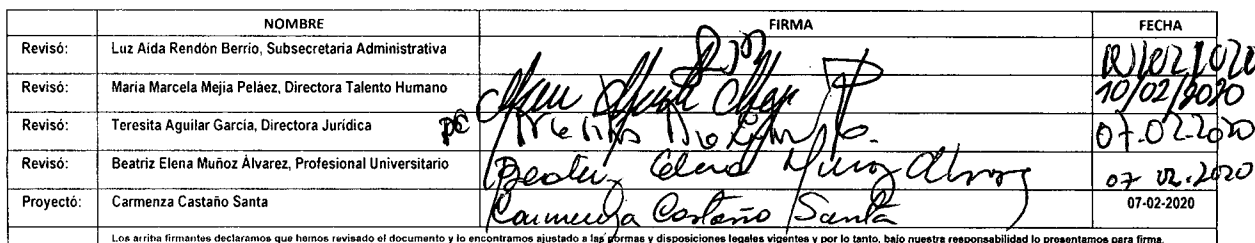 NOMBRE FIRMA FECHA
Revisó: Luz Aida Rendón Berrío, Subsecretaria Administrativa
Revisó: María Marcela Mejía Peláez, Directora Talento Humano 10/02/2020
Revisó: Teresita Aguilar García, Directora Jurídica 07-02-2020
Revisó: Beatriz Elena Muñoz Álvarez, Profesional Universitario Beatriz Elena Muñoz Álvarez 07 02-2020
Proyectó: Carmenza Castaño Santa Carmenza Castaño Santa 07-02-2020
Los arriba firmantes declaramos que hemos revisado el documento y lo encontramos ajustado a las normas y disposiciones legales vigentes y por lo tanto, bajo nuestra responsabilidad lo presentamos para firma.